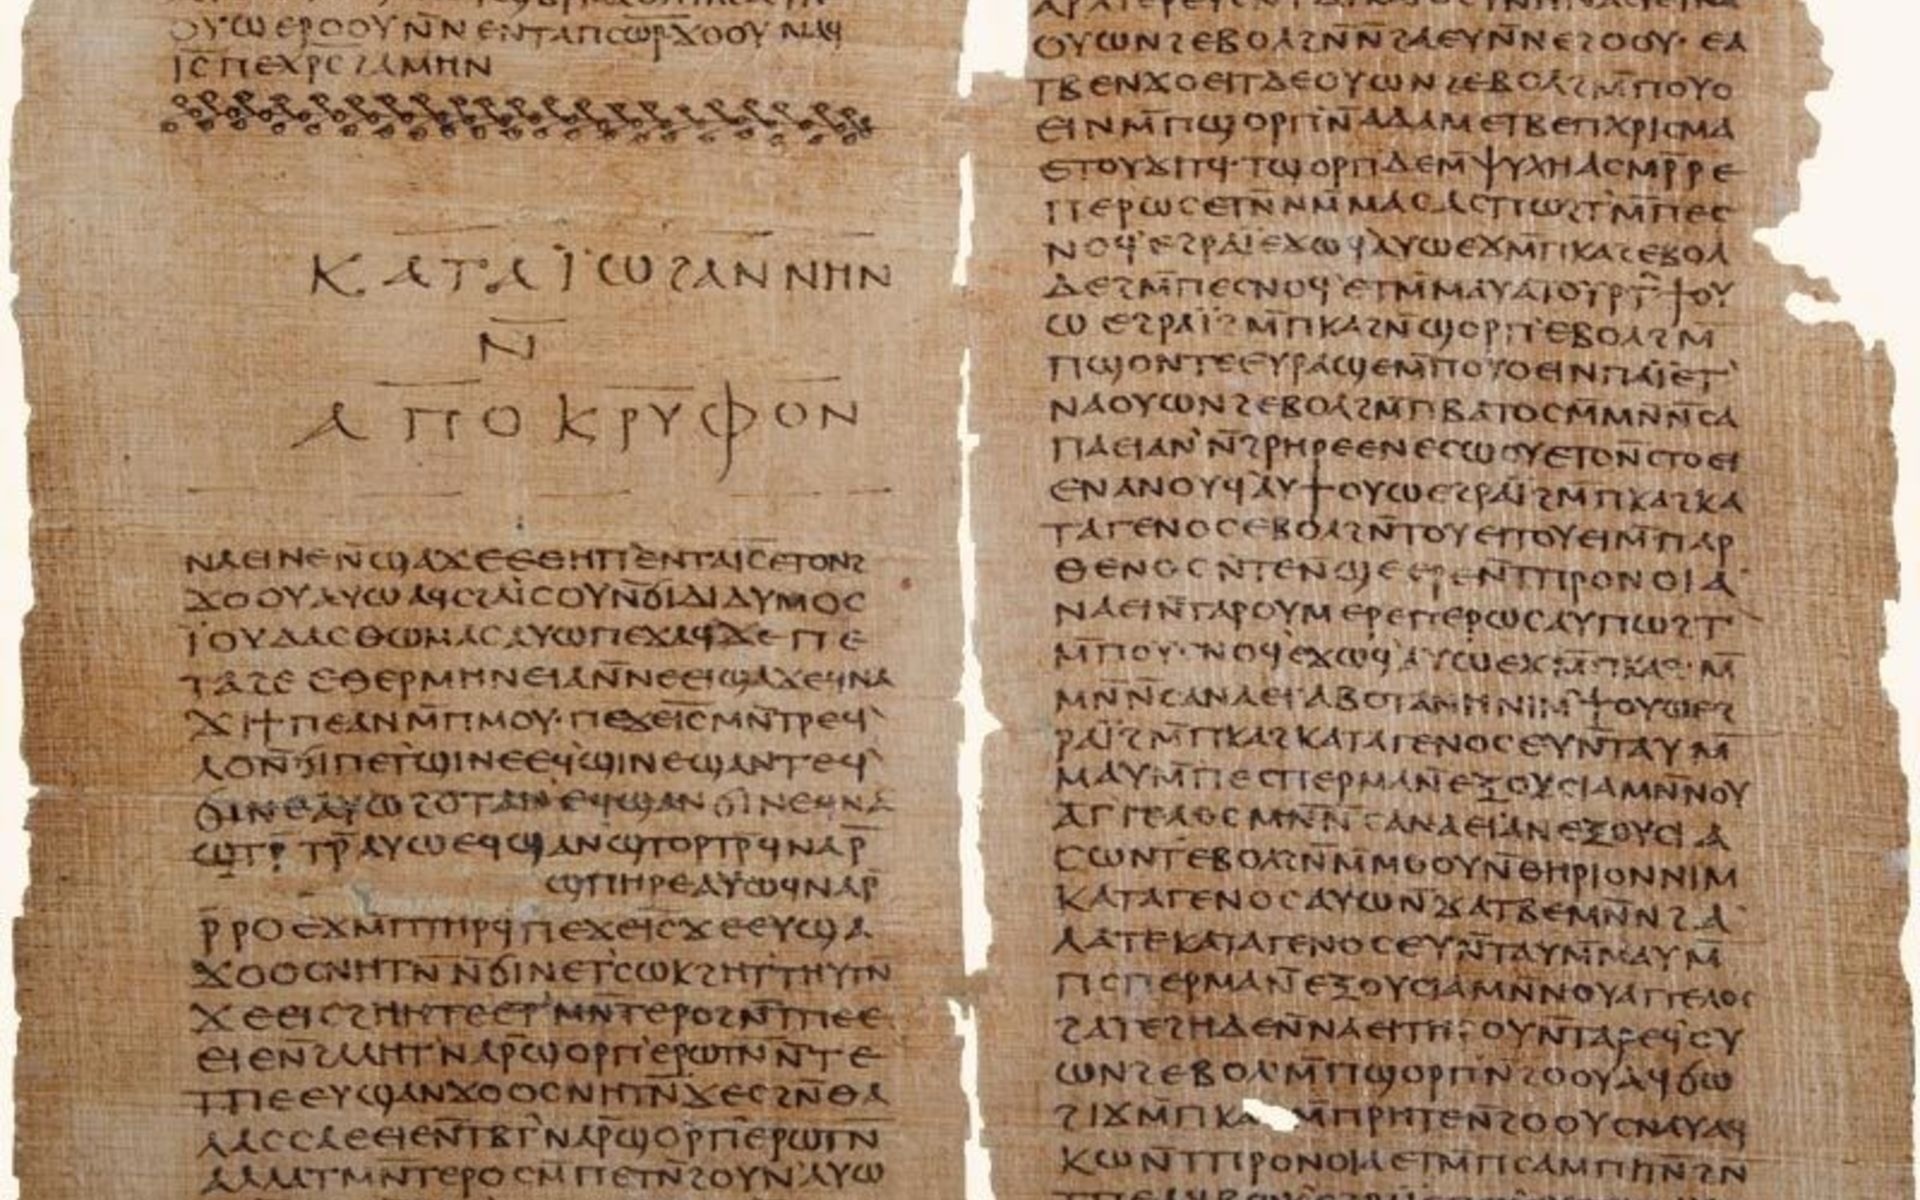 ⲟⲩⲱ ⲉⲣⲟⲟⲩ ⲛ̄ⲛ ⲉⲛⲧⲁⲡⲥⲱ̅ⲣ̅ ϫⲟⲟⲩ ⲛⲁϥ
ⲓ̅ⲥ̅ ⲡⲉⲭⲣ̅ⲥ̅ ϩⲁⲙⲏⲛ
ⲕⲁⲧⲁ ⲓ̈ⲱϩⲁⲛⲛⲏⲛ
ⲛ̄
ⲁⲡⲟⲕⲣⲩⲫⲟⲛ
ⲛⲁⲉⲓ ⲛⲉ ⲛ̄ϣⲁϫⲉ ⲉⲑⲏⲡ ⲉⲛⲧⲁⲓ̅ⲥ̅ ⲉⲧⲟⲛϩ
ϫⲟⲟⲩ ⲁⲩⲱ ⲁϥⲥϩⲁⲓ̈ⲥⲟⲩ ⲛ̄ϭⲓ ⲇⲓⲇⲩⲙⲟⲥ
ⲓ̈ⲟⲩⲇⲁⲥ ⲑⲱⲙⲁⲥ ⲁⲩⲱ ⲡⲉϫⲁϥ ϫⲉ ⲡⲉ
ⲧⲁϩⲉ ⲉⲑⲉⲣⲙⲏⲛⲉⲓⲁ ⲛ̄ⲛⲉⲉⲓϣⲁϫⲉ ϥⲛⲁ
ϫⲓ ϯⲡⲉ ⲁⲛ ⲙ̄ⲡⲙⲟⲩ· ⲡⲉϫⲉ ⲓ̅ⲥ̅ ⲙⲛ̄ⲧⲣⲉϥ
ⲗⲟ ⲛ̄ϭⲓ ⲡⲉⲧϣⲓⲛⲉ ⲉϥϣⲓⲛⲉ ϣⲁⲛⲧⲉϥ
ϭⲓⲛⲉ ⲁⲩⲱ ϩⲟⲧⲁⲛ ⲉϥϣⲁⲛϭⲓⲛⲉ ϥⲛⲁ
ϣⲧⲣ̄ⲧⲣ̄ ⲁⲩⲱ ⲉϥϣⲁⲛϣⲧⲟⲣⲧⲣ̄ ϥⲛⲁⲣ̄
ϣⲡⲏⲣⲉ ⲁⲩⲱ ϥⲛⲁⲣ̄
ⲣ̄ⲣⲟ ⲉϫⲙ̄ ⲡⲧⲏⲣϥ ⲡⲉϫⲉ ⲓ̅ⲥ̅ ϫⲉ ⲉⲩϣⲁ
ϫⲟⲟⲥ ⲛⲏⲧⲛ̄ ⲛ̄ϭⲓ ⲛⲉⲧⲥⲱⲕ ϩⲏⲧ ⲧⲏⲩⲧⲛ̄
ϫⲉ ⲉⲓⲥϩⲏⲏⲧⲉ ⲉⲧⲙⲛ̄ⲧⲉⲣⲟ ϩⲛ̄ ⲧⲡⲉ ⲉ
ⲉⲓⲉ ⲛ̄ϩⲁⲗⲏⲧ ⲛⲁⲣ̄ ϣⲟⲣⲡ ⲉⲣⲱⲧⲛ̄ ⲛ̄ⲧⲉ
ⲧⲡⲉ ⲉⲩϣⲁⲛϫⲟⲟⲥ ⲛⲏⲧⲛ̄ ϫⲉ ⲥϩⲛ̄ ⲑⲁ
ⲗⲁⲥⲥⲁ ⲉⲉⲓⲉ ⲛ̄ⲧⲃⲧ ⲛⲁⲣ̄ ϣⲟⲣⲡ ⲉⲣⲱⲧⲛ̄
ⲁⲗⲗⲁ ⲧⲙⲛ̄ⲧⲉⲣⲟ ⲥⲙ̄ⲡⲉⲧⲛ̄ϩⲟⲩⲛ ⲁⲩⲱ
ⲟⲩⲱⲛϩ ⲉⲃⲟⲗ ϩⲛ̄ⲛ̄ϩⲁⲉⲩ ⲛ̄ⲛⲉϩⲟⲟⲩ· ⲉⲧ
ⲧⲃⲉⲛϫⲟⲉⲓⲧ ⲇⲉ ⲟⲩⲱⲛϩ ⲉⲃⲟⲗ ϩⲙ̄ ⲡⲟⲩⲟ
ⲉⲓⲛ ⲙ̄ⲡϣⲟⲣⲡ ⲛ̄ⲁⲇⲁⲙ ⲉⲧⲃⲉ ⲡⲭⲣⲓⲥⲙⲁ
ⲉⲧⲟⲩϫⲓⲧϥ· ⲧϣⲟⲣⲡ ⲇⲉ ⲙ̄ⲯⲩⲭⲏ ⲁⲥⲙⲣ̄ⲣⲉ
ⲡⲉⲣⲱⲥ ⲉⲧⲛ̄ⲛⲙ̄ⲙⲁⲥ ⲁⲥⲡⲱϩⲧ ⲙ̄ⲡⲉⲥ
ⲛⲟϥ ⲉϩⲣⲁⲓ̈ ⲉϫⲱϥ ⲁⲩⲱ ⲉϫⲙ̄ ⲡⲕⲁϩ ⲉⲃⲟⲗ
ⲇⲉ ϩⲙ̄ ⲡⲉⲥⲛⲟϥ ⲉⲧⲙ̄ⲙⲁⲩ ⲁⲡⲟⲩⲣⲧ ϯⲟⲩ
ⲱ ⲉϩⲣⲁⲓ̈ ϩⲙ̄ ⲡⲕⲁϩ ⲛ̄ϣⲟⲣⲡ ⲉⲃⲟⲗ ϩⲙ̄
ⲡϣⲟⲛⲧⲉ ⲉⲩⲣⲁϣⲉ ⲙ̄ⲡⲟⲩⲟⲉⲓⲛ ⲡⲁⲓ̈ ⲉⲧ
ⲛⲁⲟⲩⲱⲛϩ ⲉⲃⲟⲗ ϩⲙ̄ ⲡⲃⲁⲧⲟⲥ ⲙ̄ⲙⲛ̄ⲛ̄ⲥⲁ
ⲡⲁⲉⲓ ⲁⲛ̄ϩⲣⲏⲣⲉ ⲉⲛⲉⲥⲱⲟⲩ ⲉⲧⲟⲛ̄ⲥⲧⲟⲉⲓ
ⲉⲛⲁⲛⲟⲩϥ ⲁⲩϯⲟⲩⲱ ⲉϩⲣⲁⲓ̈ ϩⲙ̄ ⲡⲕⲁϩ ⲕⲁ
ⲧⲁ ⲅⲉⲛⲟⲥ ⲉⲃⲟⲗ ϩⲛ̄ ⲧⲟⲩⲉⲓ ⲧⲟⲩⲉⲓ ⲙ̄ⲡⲁⲣ
ⲑⲉⲛⲟⲥ ⲛ̄ⲧⲉ ⲛ̄ϣⲉⲉⲣⲉ ⲛ̄ⲧⲡⲣⲟⲛⲟⲓⲁ
ⲛⲁⲉⲓ ⲛ̄ⲧⲁⲣⲟⲩⲙⲉⲣⲉ ⲡⲉⲣⲱⲥ ⲁⲩⲡⲱϩⲧ
ⲙ̄ⲡⲟⲩⲥⲛⲟϥ ⲉϫⲱϥ ⲁⲩⲱ ⲉϫⲙ̄ ⲡⲕⲁϩ· ⲙ̄
ⲙⲛ̄ⲛ̄ⲥⲁ ⲛⲁⲉⲓ ⲁⲃⲟⲧⲁⲛⲏ ⲛⲓⲙ ϯⲟⲩⲱ ⲉϩ
ⲣⲁⲓ̈ ϩⲙ̄ ⲡⲕⲁϩ ⲕⲁⲧⲁ ⲅⲉⲛⲟⲥ ⲉⲩⲛ̄ⲧⲁⲩ ⲙ̄
ⲙⲁⲩ ⲙ̄ⲡⲉⲥⲡⲉⲣⲙⲁ ⲛ̄ⲉⲝⲟⲩⲥⲓⲁ ⲙⲛ̄ ⲛⲟⲩ
ⲁⲅⲅⲉⲗⲟⲥ ⲙⲛ̄ⲛ̄ⲥⲁ ⲛⲁⲉⲓ ⲁⲛⲉⲝⲟⲩⲥⲓⲁ
ⲥⲱⲛⲧ ⲉⲃⲟⲗ ϩⲛ̄ ⲙ̄ⲙⲟⲟⲩ ⲛ̄ⲑⲏⲣⲓⲟⲛ ⲛⲓⲙ
ⲕⲁⲧⲁ ⲅⲉⲛⲟⲥ ⲁⲩⲱ ⲛ̄ϫⲁⲧⲃⲉ ⲙⲛ̄ ⲛ̄ϩⲁ
ⲗⲁⲧⲉ ⲕⲁⲧⲁ ⲅⲉⲛⲟⲥ ⲉⲩⲛ̄ⲧⲁⲩ ⲙ̄ⲙⲁⲩ ⲙ̄
ⲡⲥⲡⲉⲣⲙⲁ ⲛ̄ⲉⲝⲟⲩⲥⲓⲁ ⲙⲛ̄ ⲛⲟⲩⲁⲅⲅⲉⲗⲟⲥ
ϩⲁⲧⲉϩⲏ ⲇⲉ ⲛ̄ⲛⲁⲉⲓ ⲧⲏⲣⲟⲩ ⲛ̄ⲧⲁⲣⲉϥⲟⲩ
ⲱⲛϩ ⲉⲃⲟⲗ ⲙ̄ⲡϣⲟⲣⲡ ⲛ̄ϩⲟⲟⲩ ⲁϥϭⲱ
ϩⲓϫⲙ̄ ⲡⲕⲁϩ ⲙ̄ⲡⲣⲏⲧⲉ ⲛ̄ϩⲟⲟⲩ ⲥⲛⲁⲩ ⲁϥ
ⲕⲱ ⲛ̄ⲧⲡⲣⲟⲛⲟⲓⲁ ⲉⲧⲙ̄ⲡⲥⲁ ⲙⲡⲓⲧⲛ̄ ϩⲛ̄